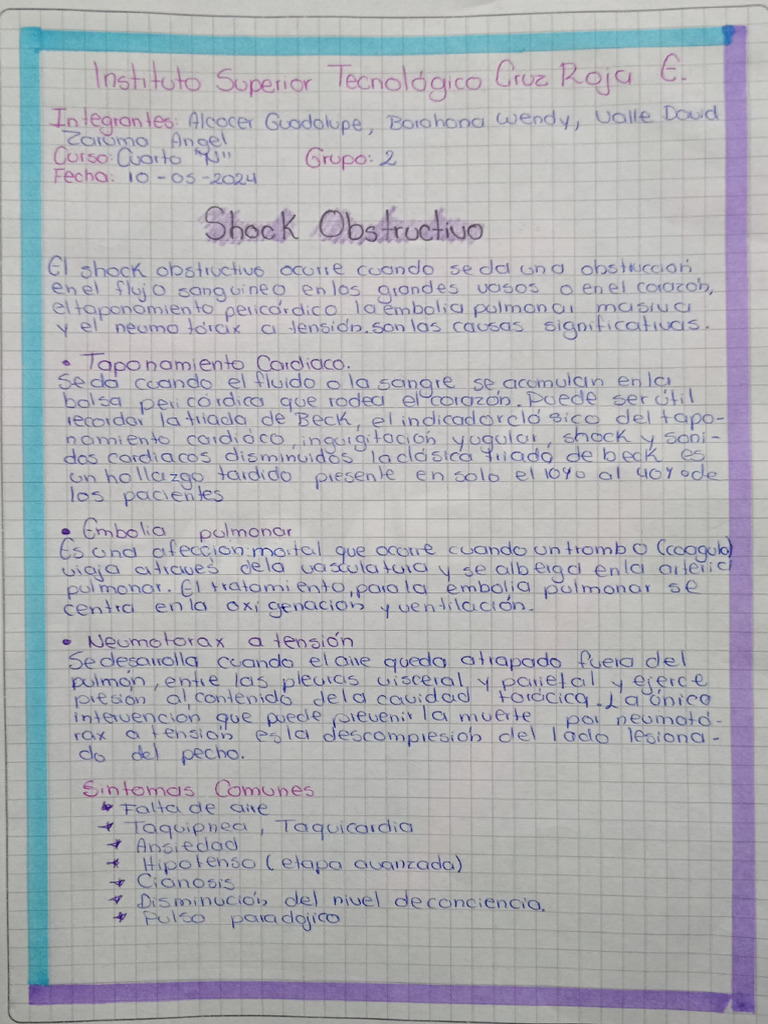 Instituto Superior Tecnológico Cruz Roja E.
Integrantes: Alcocer Guadalupe, Barahona Wendy, Valle David
Zarumo Angel
Curso: Cuarto "N" Grupo: 2
Fecha: 10-05-2024
Shock Obstructivo
El shock obstructivo ocurre cuando se da una obstruccion
en el flujo sanguineo en los grandes vasos o en el corazón,
el taponamiento pericárdico la embolia pulmonar masiva
y el neumotórax a tensión. son las causas significativas.
• Taponamiento Cardiaco.
Se da cuando el fluido o la sangre se acumulan en la
bolsa pericárdica que rodea el corazón. Puede ser útil
recordar la triada de Beck, el indicador clásico del tapo-
namiento cardiáco, ingurgitacion yugular, shock y soni-
dos cardiacos disminuidos la clásica triada de beck es
un hallazgo tardido presente en solo el 10% al 40% de
los pacientes
• Embolia pulmonar
Es una afección mortal que ocurre cuando un trombo (coagulo)
viaja atraves de la vasculatura y se alberga en la arteria
pulmonar. El tratamiento, para la embolia pulmonar se
centra en la oxigenacion y ventilación.
• Neumotorax a tensión
Se desarrolla cuando el aire queda atrapado fuera del
pulmón, entre las pleuras visceral y parietal y ejerce
presion al contenido de la cavidad torácica. La única
intervencion que puede prevenir la muerte por neumotó-
rax a tensión es la descompresion del lado lesiona-
do del pecho.
Sintomas Comunes
* Falta de aire
* Taquipnea, Taquicardia
* Ansiedad
* Hipotenso (etapa avanzada)
* Cianosis
* Disminución del nivel de conciencia.
* Pulso paradójico